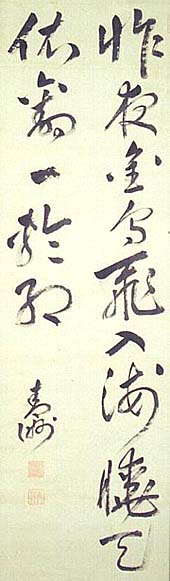 昨夜金烏飛入海曉天
依舊一輪紅